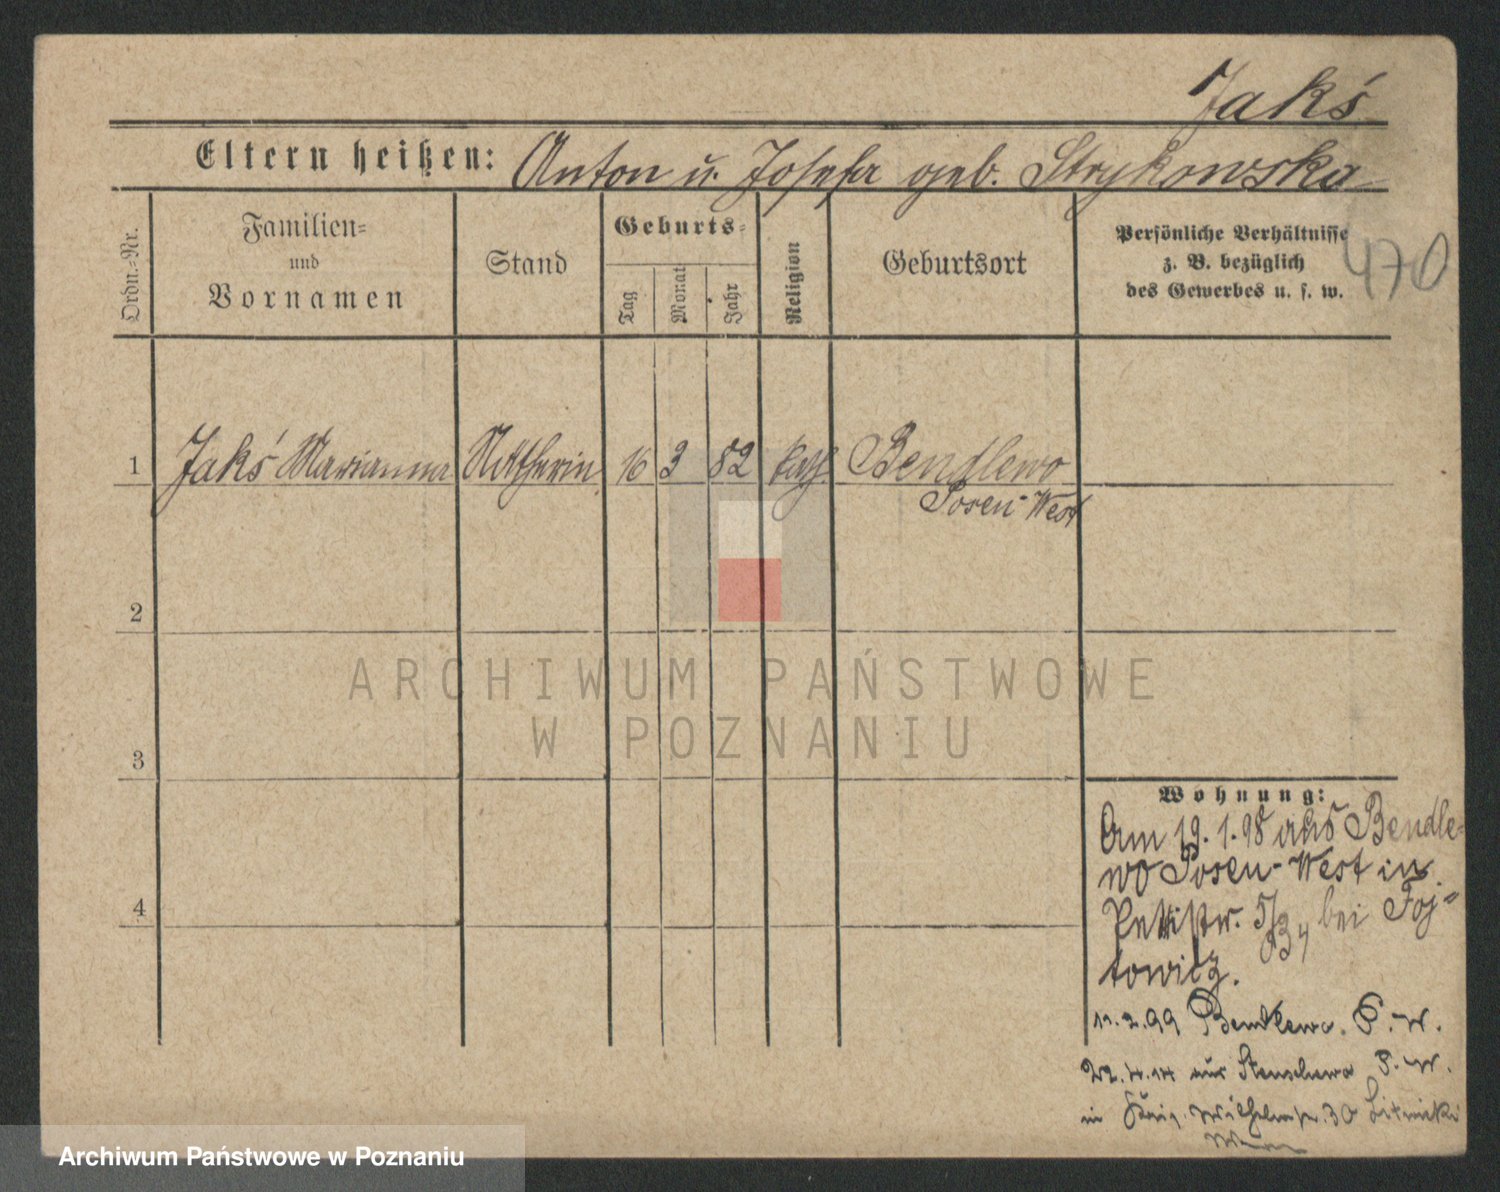 Jakś
Eltern heißen: Anton u. Josefa geb. Strykowska
Ordn.-Nr.
Familien-
und
Vornamen
Stand
Geburts-
Tag
Monat
Jahr
Religion
Geburtsort
Persönliche Verhältnisse
z. B. bezüglich
des Gewerbes u. s. w.
470
1 Jakś Marianna 16 3 82 kath. Bendlewo
Posen-West
2
3
4
ARCHIWUM PAŃSTWOWE
W POZNANIU
Wohnung:
Am 19.1.98 aus Bendle-
wo Posen-West in
bei Foj-
towicz.
11.2.99 Bendlewo. P.-W.
22.4.14 aus Stenschewo P.-W.
in Wilhelmstr. 30
Archiwum Państwowe w Poznaniu